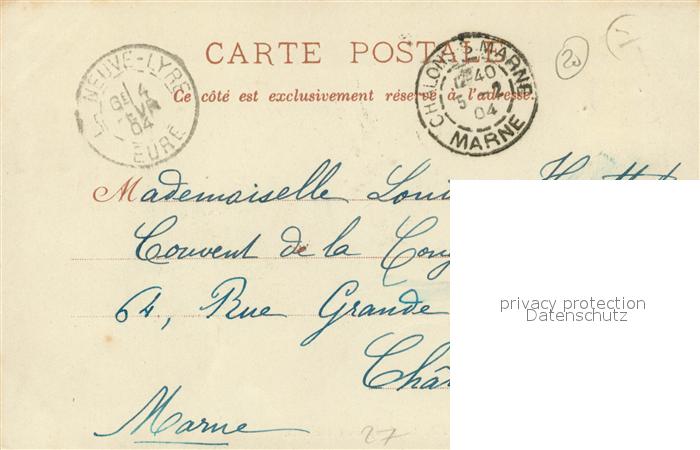 CARTE POSTALE
Ce côté est exclusivement réservé à l'adresse.
LA NEUVE-LYRE
4
04
EURE
CHALONS-S-MARNE
12 40
5 -2
04
MARNE
20
Mademoiselle
Couvent de la
64, Rue Grande
Marne
27
privacy protection
Datenschutz